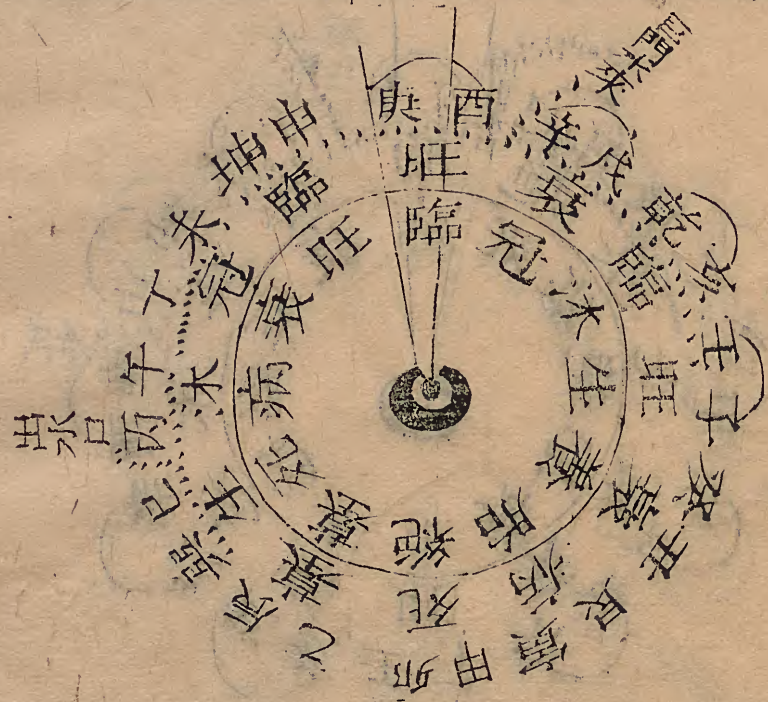 巨門來
出水口
庚 酉 辛 戌 乾 亥 壬 子 癸 丑 艮 寅 甲 卯 乙 辰 巽 巳 丙 午 丁 未 坤 申
旺 衰 臨 旺 病 死 墓 生 木 冠 臨
臨 冠 沐 生 養 胎 絕 墓 死 病 衰 旺